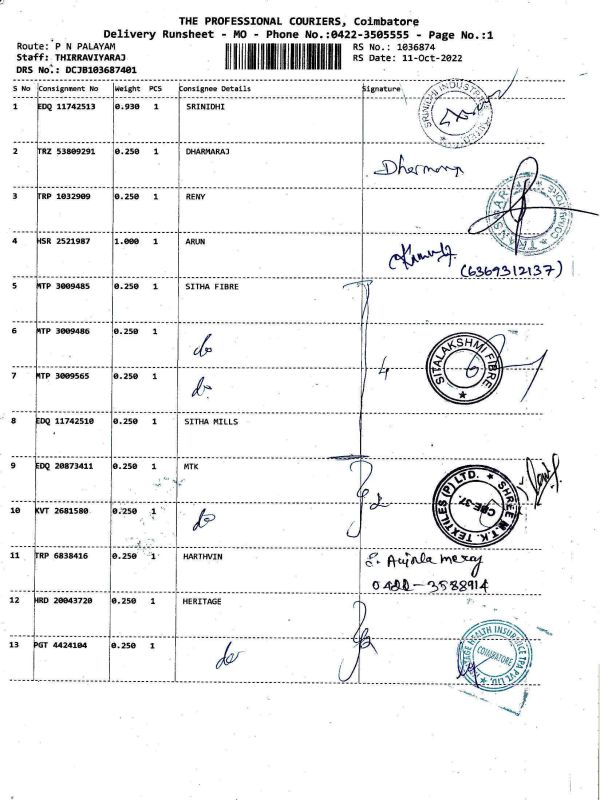 THE PROFESSIONAL COURIERS, Coimbatore
Delivery Runsheet - MO - Phone No.:0422-3505555 - Page No.:1
Route: P N PALAYAM RS No.: 1036874
Staff: THIRRAVIYARAJ RS Date: 11-Oct-2022
DRS No.: DCJB103687401
S No Consignment No Weight PCS Consignee Details Signature
1 EDQ 11742513 0.930 1 SRINIDHI
SRINIDHI INDUSTR
2 TRZ 53809291 0.250 1 DHARMARAJ
Dharmaraj
3 TRP 1032909 0.250 1 RENY
4 HSR 2521987 1.000 1 ARUN
(6369312137)
5 MTP 3009485 0.250 1 SITHA FIBRE
6 MTP 3009486 0.250 1 do
7 MTP 3009565 0.250 1 do 4
SITALAKSHMI FIBRE
8 EDQ 11742510 0.250 1 SITHA MILLS
9 EDQ 20873411 0.250 1 MTK
SHREE M.T.K. TEXTILES (P) LTD.
CBE-37.
10 KVT 2681580 0.250 1 do 2
11 TRP 6838416 0.250 1 HARTHVIN
0422-3588914
12 HRD 20043720 0.250 1 HERITAGE
13 PGT 4424104 0.250 1 do
HEALTH INSURANCE TPA PVT. LTD.
COIMBATORE